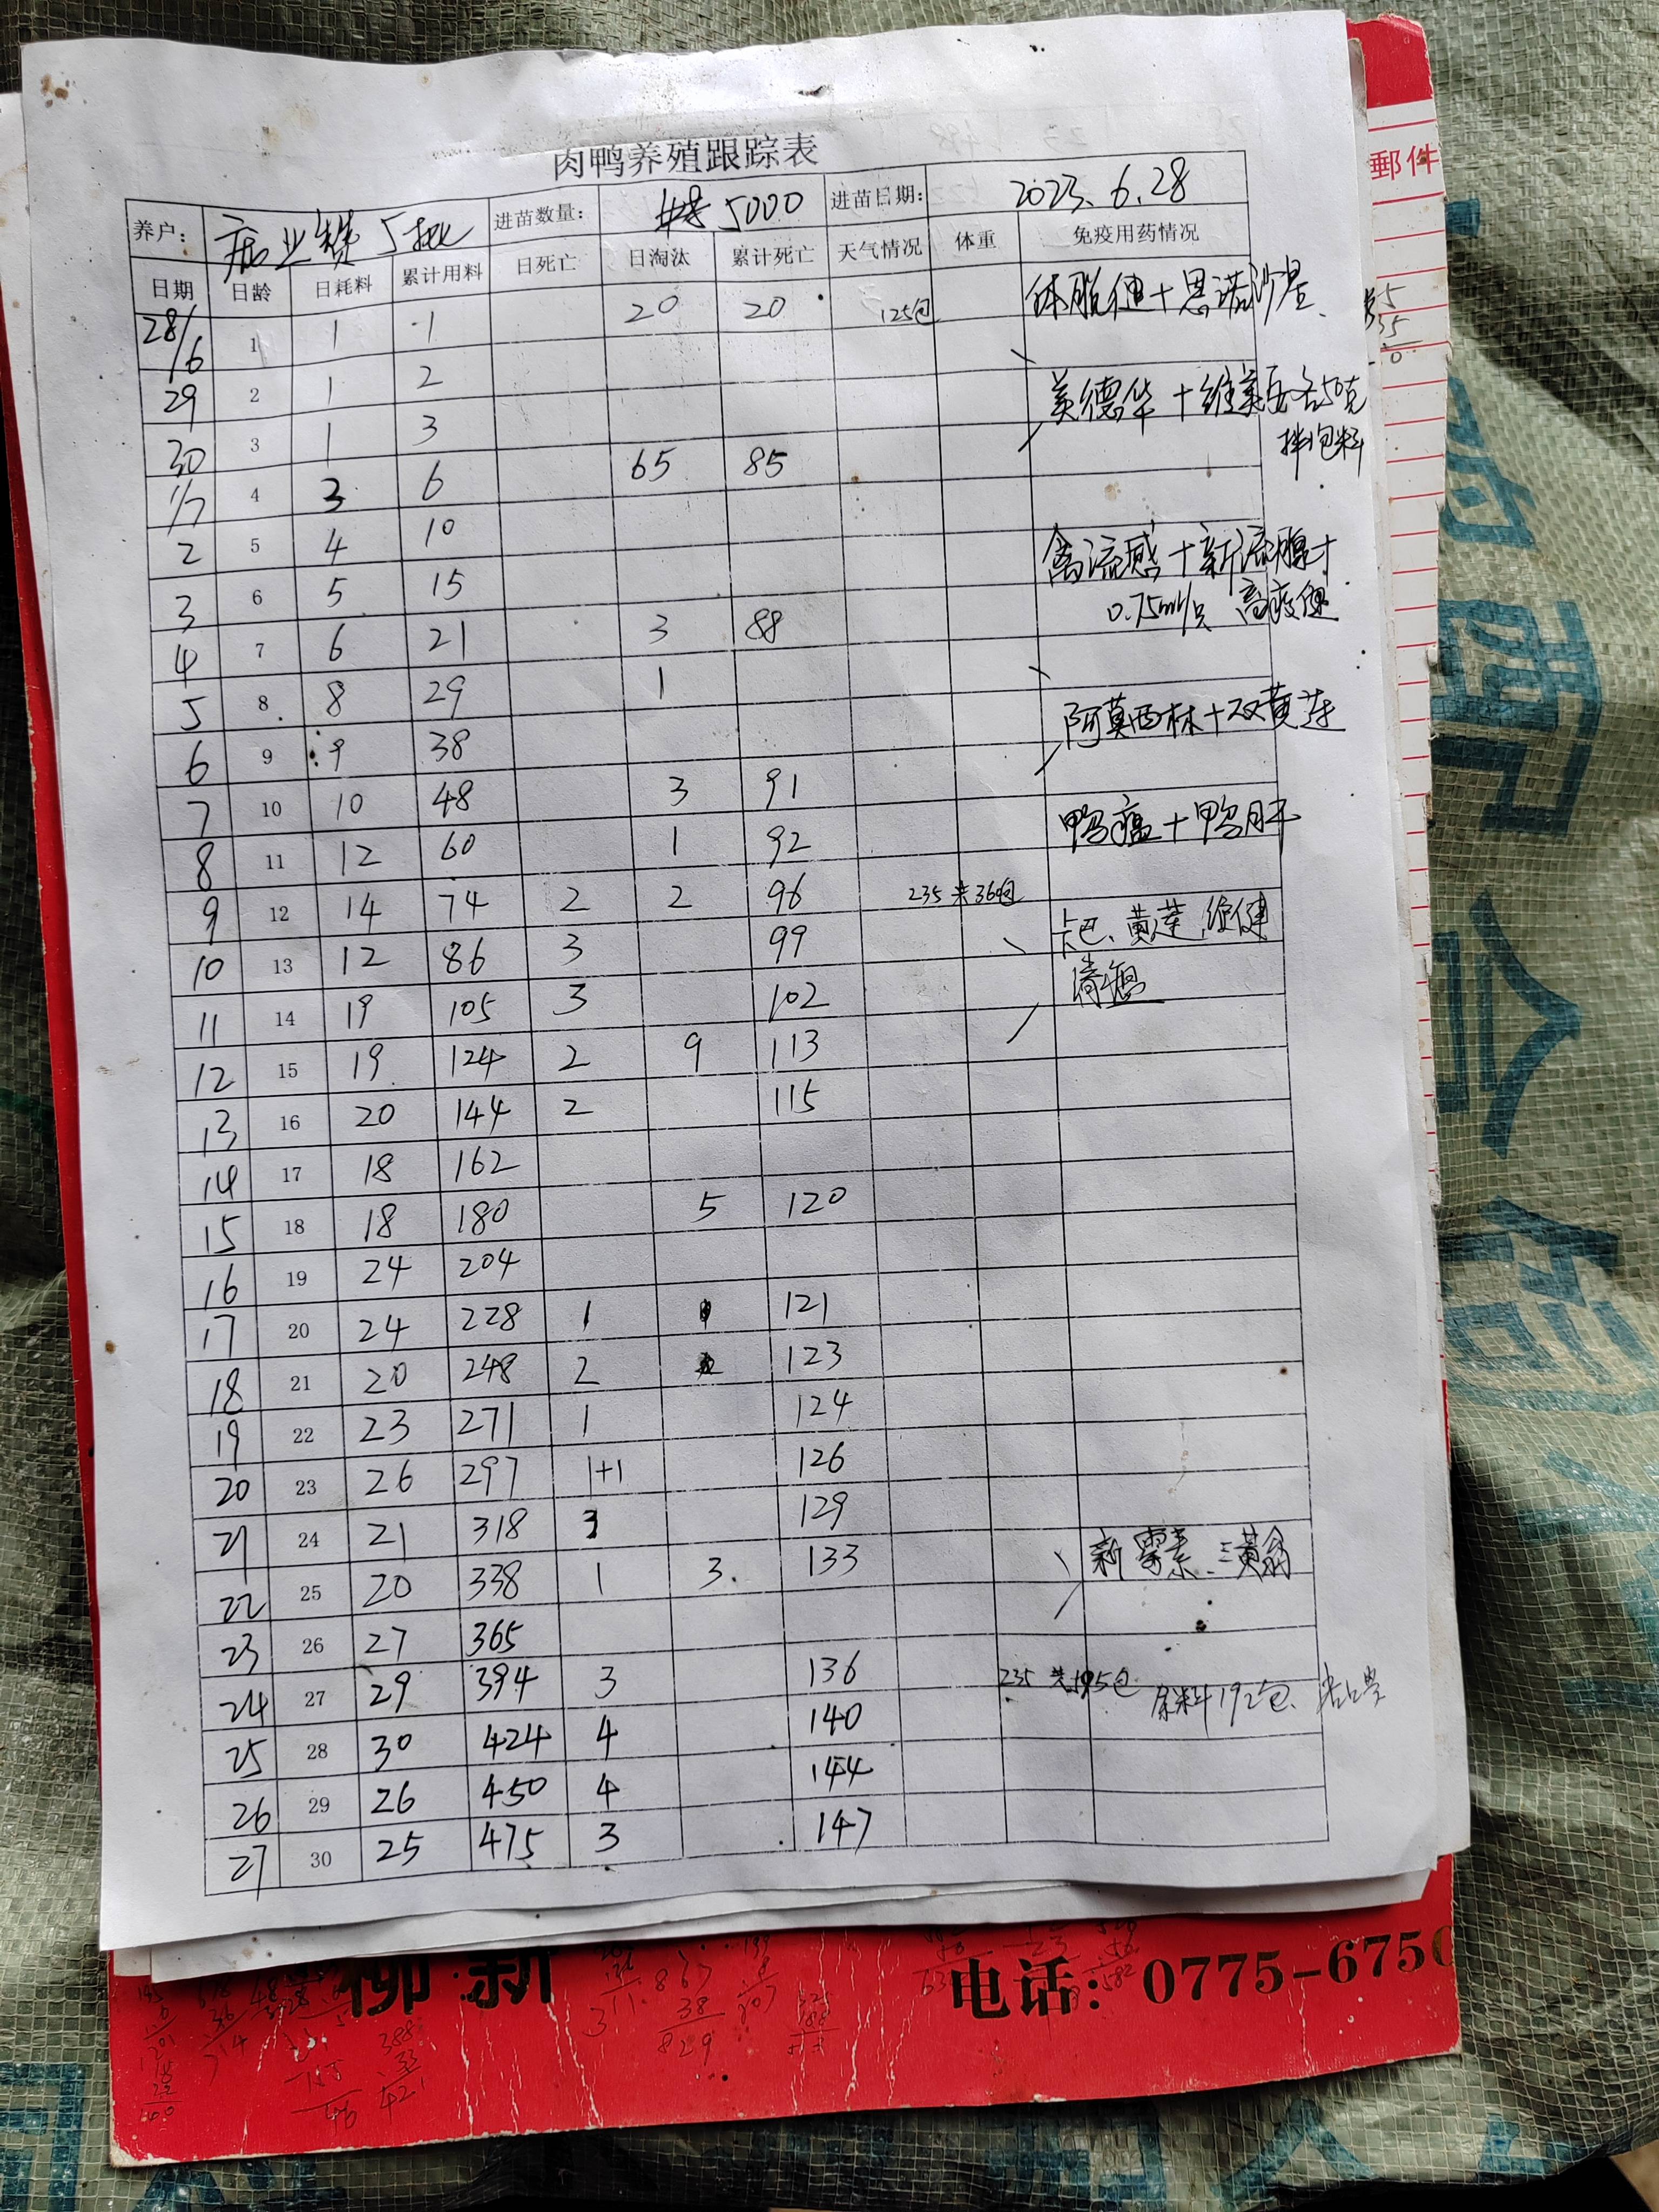 肉鸭养殖跟踪表
养户: 业赞 5批 进苗数量: 5000 进苗日期: 2023.6.28
日期 日龄 日耗料 累计用料 日死亡 日淘汰 累计死亡 天气情况 体重 免疫用药情况
28/6 1 1 1 20 20 125包 体脱健+恩诺沙星
29 2 1 2 美德华+维 各50克
30 3 1 3 拌包料
1/7 4 3 6 65 85
2 5 4 10 禽流感+新流腺
3 6 5 15 0.75ml/只 高疫健
4 7 6 21 3 88
5 8 8 29 1
6 9 9 38 阿莫西林+双黄连
7 10 10 48 3 91
8 11 12 60 1 92 鸭瘟+鸭肝
9 12 14 74 2 2 96 235 共360包
10 13 12 86 3 99 卡巴、黄莲、健
11 14 19 105 3 102
12 15 19 124 2 9 113
13 16 20 144 2 115
14 17 18 162
15 18 18 180 5 120
16 19 24 204
17 20 24 228 1 121
18 21 20 248 2 123
19 22 23 271 1 124
20 23 26 297 1+1 126
21 24 21 318 3 129
22 25 20 338 1 3 133 新霉素、三黄翁
23 26 27 365
24 27 29 394 3 136 235 共195包 余料192包
25 28 30 424 4 140
26 29 26 450 4 144
27 30 25 475 3 147
郵件
柳 新 电话: 0775-675